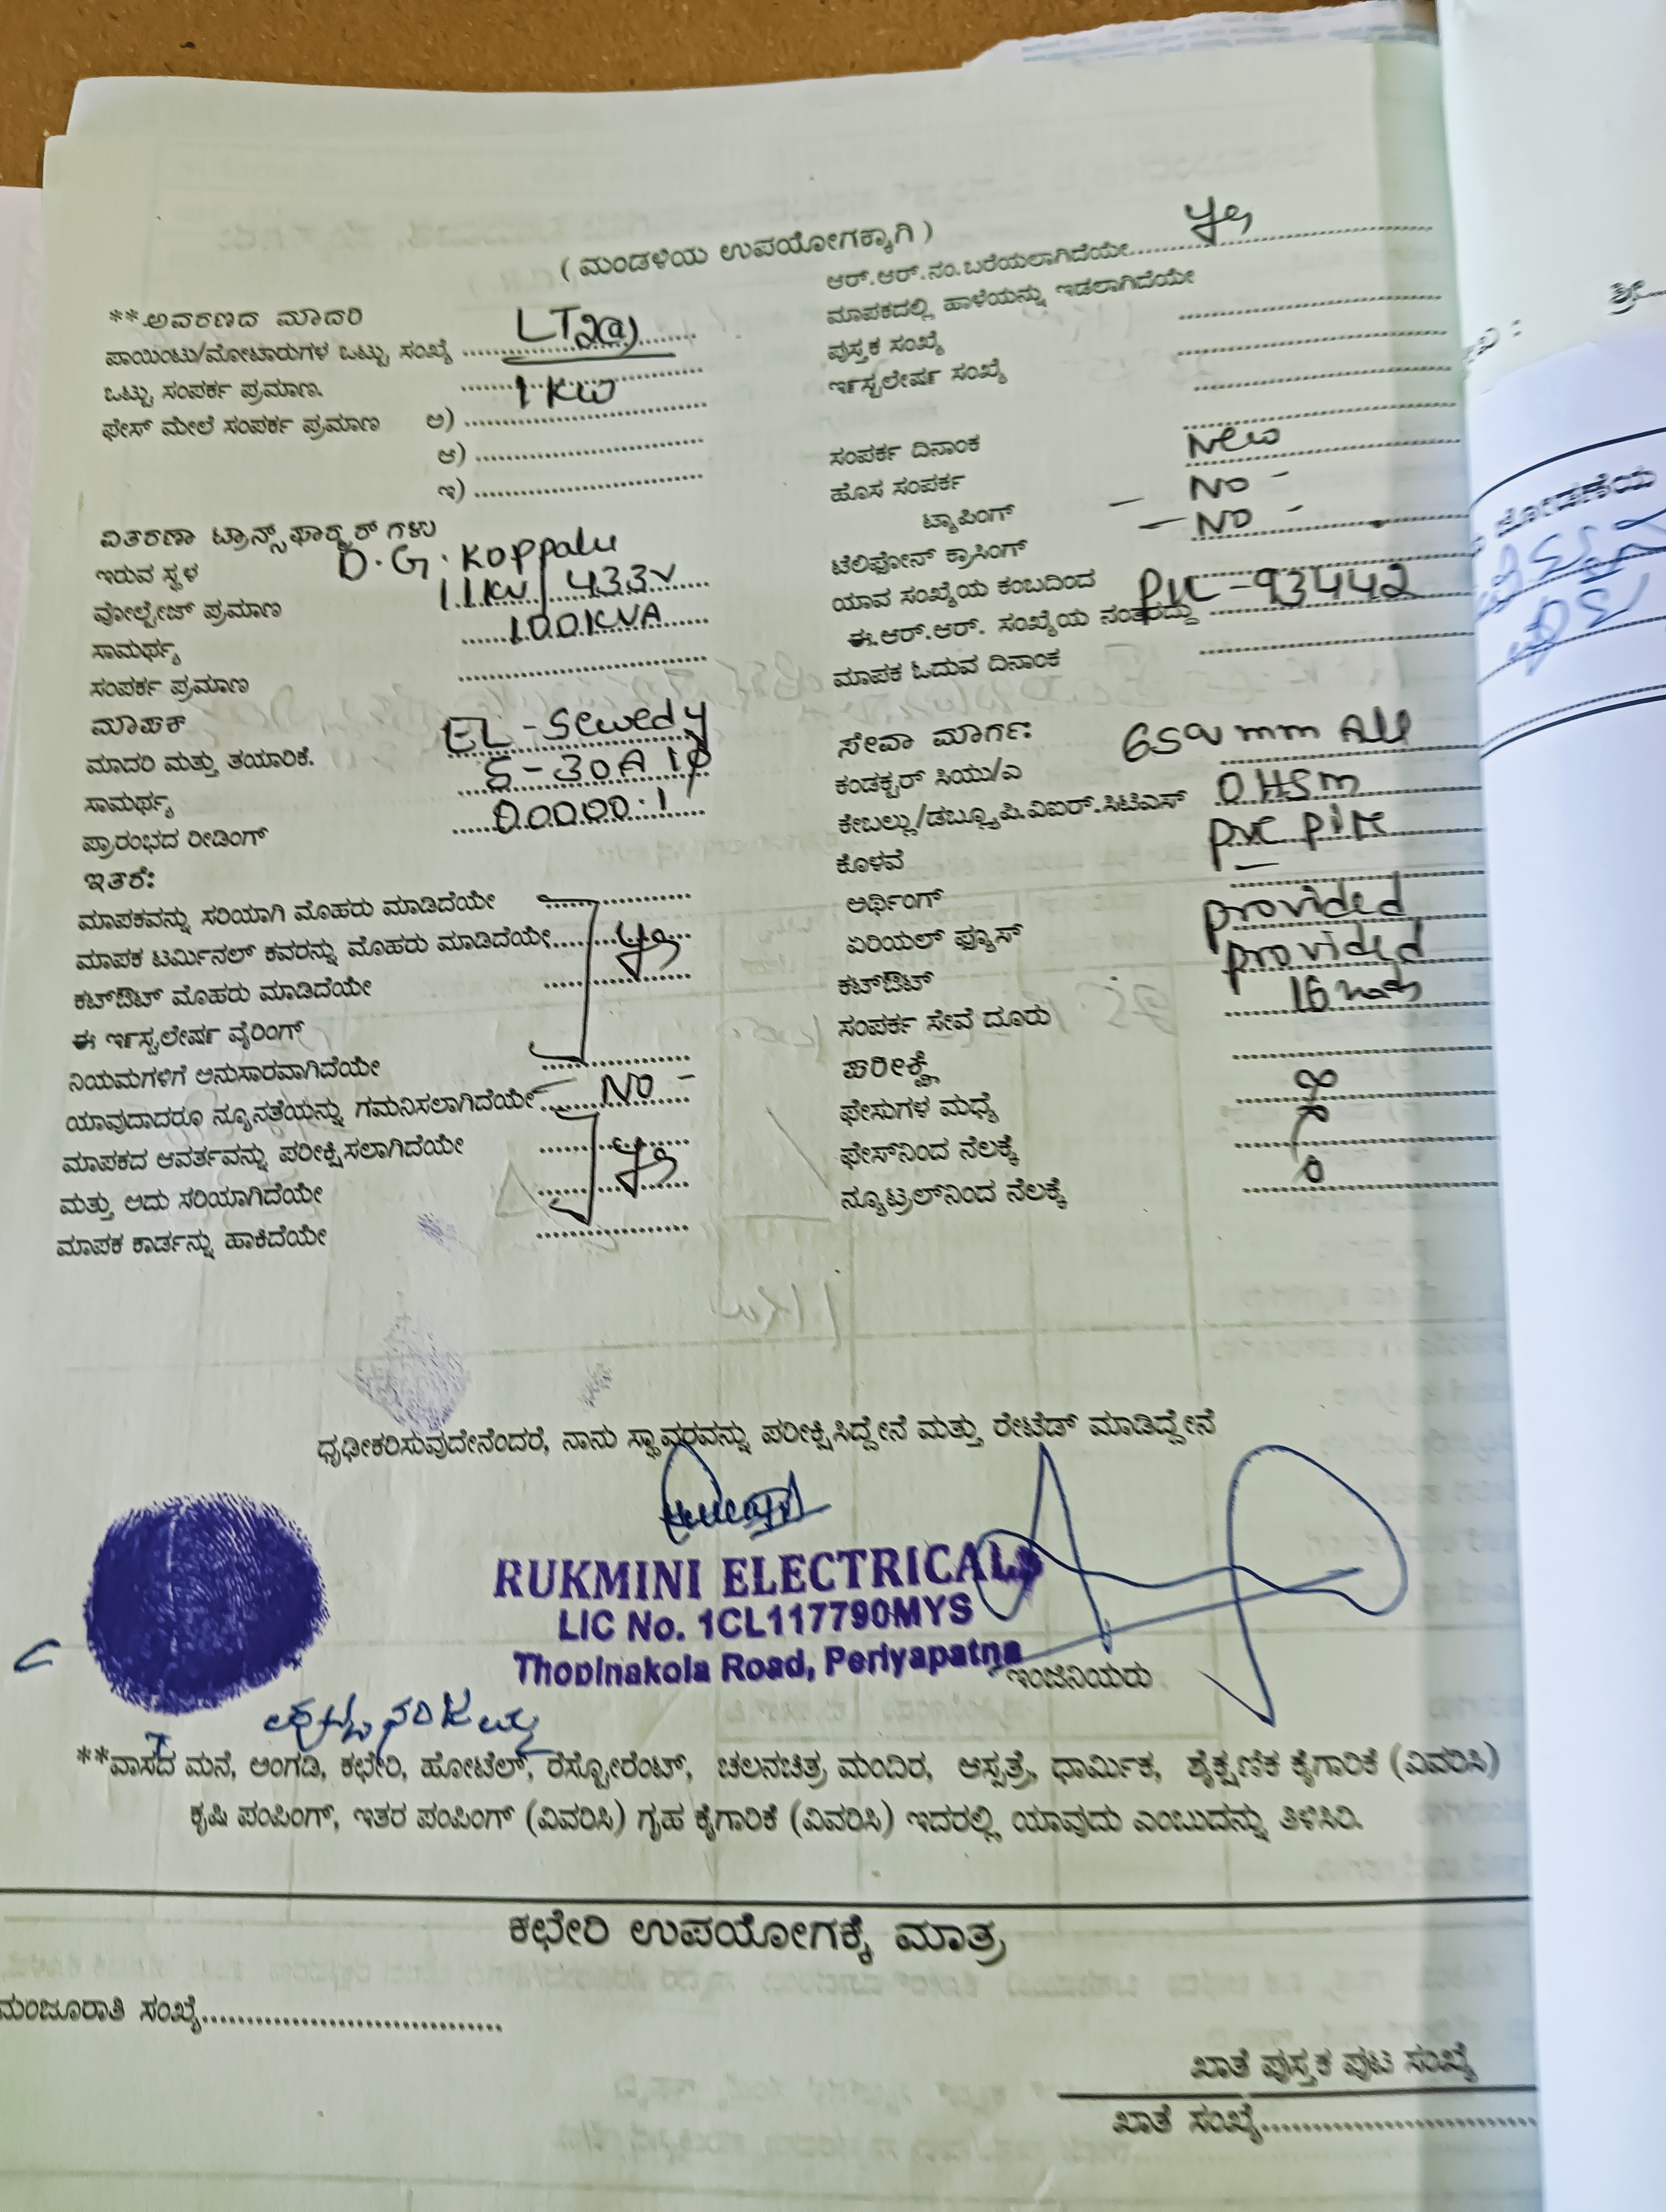 ( ಮಂಡಳಿಯ ಉಪಯೋಗಕ್ಕಾಗಿ )
**ಅವರಣದ ಮಾದರಿ LT2(a)
ಪಾಯಿಂಟು/ಮೋಟಾರುಗಳ ಒಟ್ಟು ಸಂಖ್ಯೆ
ಒಟ್ಟು ಸಂಪರ್ಕ ಪ್ರಮಾಣ. 1 KW
ಫೇಸ್ ಮೇಲೆ ಸಂಪರ್ಕ ಪ್ರಮಾಣ ಅ)
ಆ)
ಇ)
ವಿತರಣಾ ಟ್ರಾನ್ಸ್‌ಫಾರ್ಮರ್ ಗಳು
ಇರುವ ಸ್ಥಳ D.G.Koppalu
ವೋಲ್ಟೇಜ್ ಪ್ರಮಾಣ 11KV/433V
ಸಾಮರ್ಥ್ಯ 100KVA
ಸಂಪರ್ಕ ಪ್ರಮಾಣ
ಮಾಪಕ
ಮಾದರಿ ಮತ್ತು ತಯಾರಿಕೆ. EL-Sewedy
ಸಾಮರ್ಥ್ಯ 5-30A 1φ
ಪ್ರಾರಂಭದ ರೀಡಿಂಗ್ 00000.1
ಇತರೆ:
ಮಾಪಕವನ್ನು ಸರಿಯಾಗಿ ಮೊಹರು ಮಾಡಿದೆಯೇ
ಮಾಪಕ ಟರ್ಮಿನಲ್ ಕವರನ್ನು ಮೊಹರು ಮಾಡಿದೆಯೇ yes
ಕಟ್‌ಔಟ್ ಮೊಹರು ಮಾಡಿದೆಯೇ
ಈ ಇನ್‌ಸ್ಟಲೇಷನ್ ವೈರಿಂಗ್
ನಿಯಮಗಳಿಗೆ ಅನುಸಾರವಾಗಿದೆಯೇ
ಯಾವುದಾದರೂ ನ್ಯೂನತೆಯನ್ನು ಗಮನಿಸಲಾಗಿದೆಯೇ - NO -
ಮಾಪಕದ ಆವರ್ತವನ್ನು ಪರೀಕ್ಷಿಸಲಾಗಿದೆಯೇ
ಮತ್ತು ಅದು ಸರಿಯಾಗಿದೆಯೇ yes
ಮಾಪಕ ಕಾರ್ಡನ್ನು ಹಾಕಿದೆಯೇ
ಆರ್.ಆರ್.ನಂ.ಬರೆಯಲಾಗಿದೆಯೇ yes
ಮಾಪಕದಲ್ಲಿ ಹಾಳೆಯನ್ನು ಇಡಲಾಗಿದೆಯೇ
ಪುಸ್ತಕ ಸಂಖ್ಯೆ
ಇನ್‌ಸ್ಟಲೇಷನ್ ಸಂಖ್ಯೆ
ಸಂಪರ್ಕ ದಿನಾಂಕ
ಹೊಸ ಸಂಪರ್ಕ New
ಟ್ಯಾಪಿಂಗ್ - NO -
ಟೆಲಿಫೋನ್ ಕ್ರಾಸಿಂಗ್ - NO -
ಯಾವ ಸಂಖ್ಯೆಯ ಕಂಬದಿಂದ
ಈ.ಆರ್.ಆರ್. ಸಂಖ್ಯೆಯ ನಂತರದ್ದು -93442
ಮಾಪಕ ಓದುವ ದಿನಾಂಕ
ಸೇವಾ ಮಾರ್ಗ:
ಕಂಡಕ್ಟರ್ ಸಿಯು/ಎ mm
ಕೇಬಲ್ಲು/ಡಬ್ಲ್ಯೂ.ಪಿ.ವಿಐಆರ್.ಸಿಟಿಎಸ್ OHSM
ಕೊಳವೆ PVC
ಅರ್ಥಿಂಗ್
ಏರಿಯಲ್ ಫ್ಯೂಸ್ provided
ಕಟ್‌ಔಟ್ provided
ಸಂಪರ್ಕ ಸೇವೆ ದೂರು 16
ಪರೀಕ್ಷೆ
ಫೇಸುಗಳ ಮಧ್ಯೆ
ಫೇಸ್‌ನಿಂದ ನೆಲಕ್ಕೆ
ನ್ಯೂಟ್ರಲ್‌ನಿಂದ ನೆಲಕ್ಕೆ
ಧೃಢೀಕರಿಸುವುದೇನೆಂದರೆ, ನಾನು ಸ್ಥಾವರವನ್ನು ಪರೀಕ್ಷಿಸಿದ್ದೇನೆ ಮತ್ತು ರೇಟೆಡ್ ಮಾಡಿದ್ದೇನೆ
RUKMINI ELECTRICALS
LIC No. 1CL117790MYS
Thopinakola Road, Periyapatna
ಇಂಜಿನಿಯರು
**ವಾಸದ ಮನೆ, ಅಂಗಡಿ, ಕಛೇರಿ, ಹೋಟೆಲ್, ರೆಸ್ಟೋರೆಂಟ್, ಚಲನಚಿತ್ರ ಮಂದಿರ, ಆಸ್ಪತ್ರೆ, ಧಾರ್ಮಿಕ, ಶೈಕ್ಷಣಿಕ ಕೈಗಾರಿಕೆ (ವಿವರಿಸಿ)
ಕೃಷಿ ಪಂಪಿಂಗ್, ಇತರ ಪಂಪಿಂಗ್ (ವಿವರಿಸಿ) ಗೃಹ ಕೈಗಾರಿಕೆ (ವಿವರಿಸಿ) ಇದರಲ್ಲಿ ಯಾವುದು ಎಂಬುದನ್ನು ತಿಳಿಸಿರಿ.
ಕಛೇರಿ ಉಪಯೋಗಕ್ಕೆ ಮಾತ್ರ
ಮಂಜೂರಾತಿ ಸಂಖ್ಯೆ
ಖಾತೆ ಪುಸ್ತಕ ಪುಟ ಸಂಖ್ಯೆ
ಖಾತೆ ಸಂಖ್ಯೆ